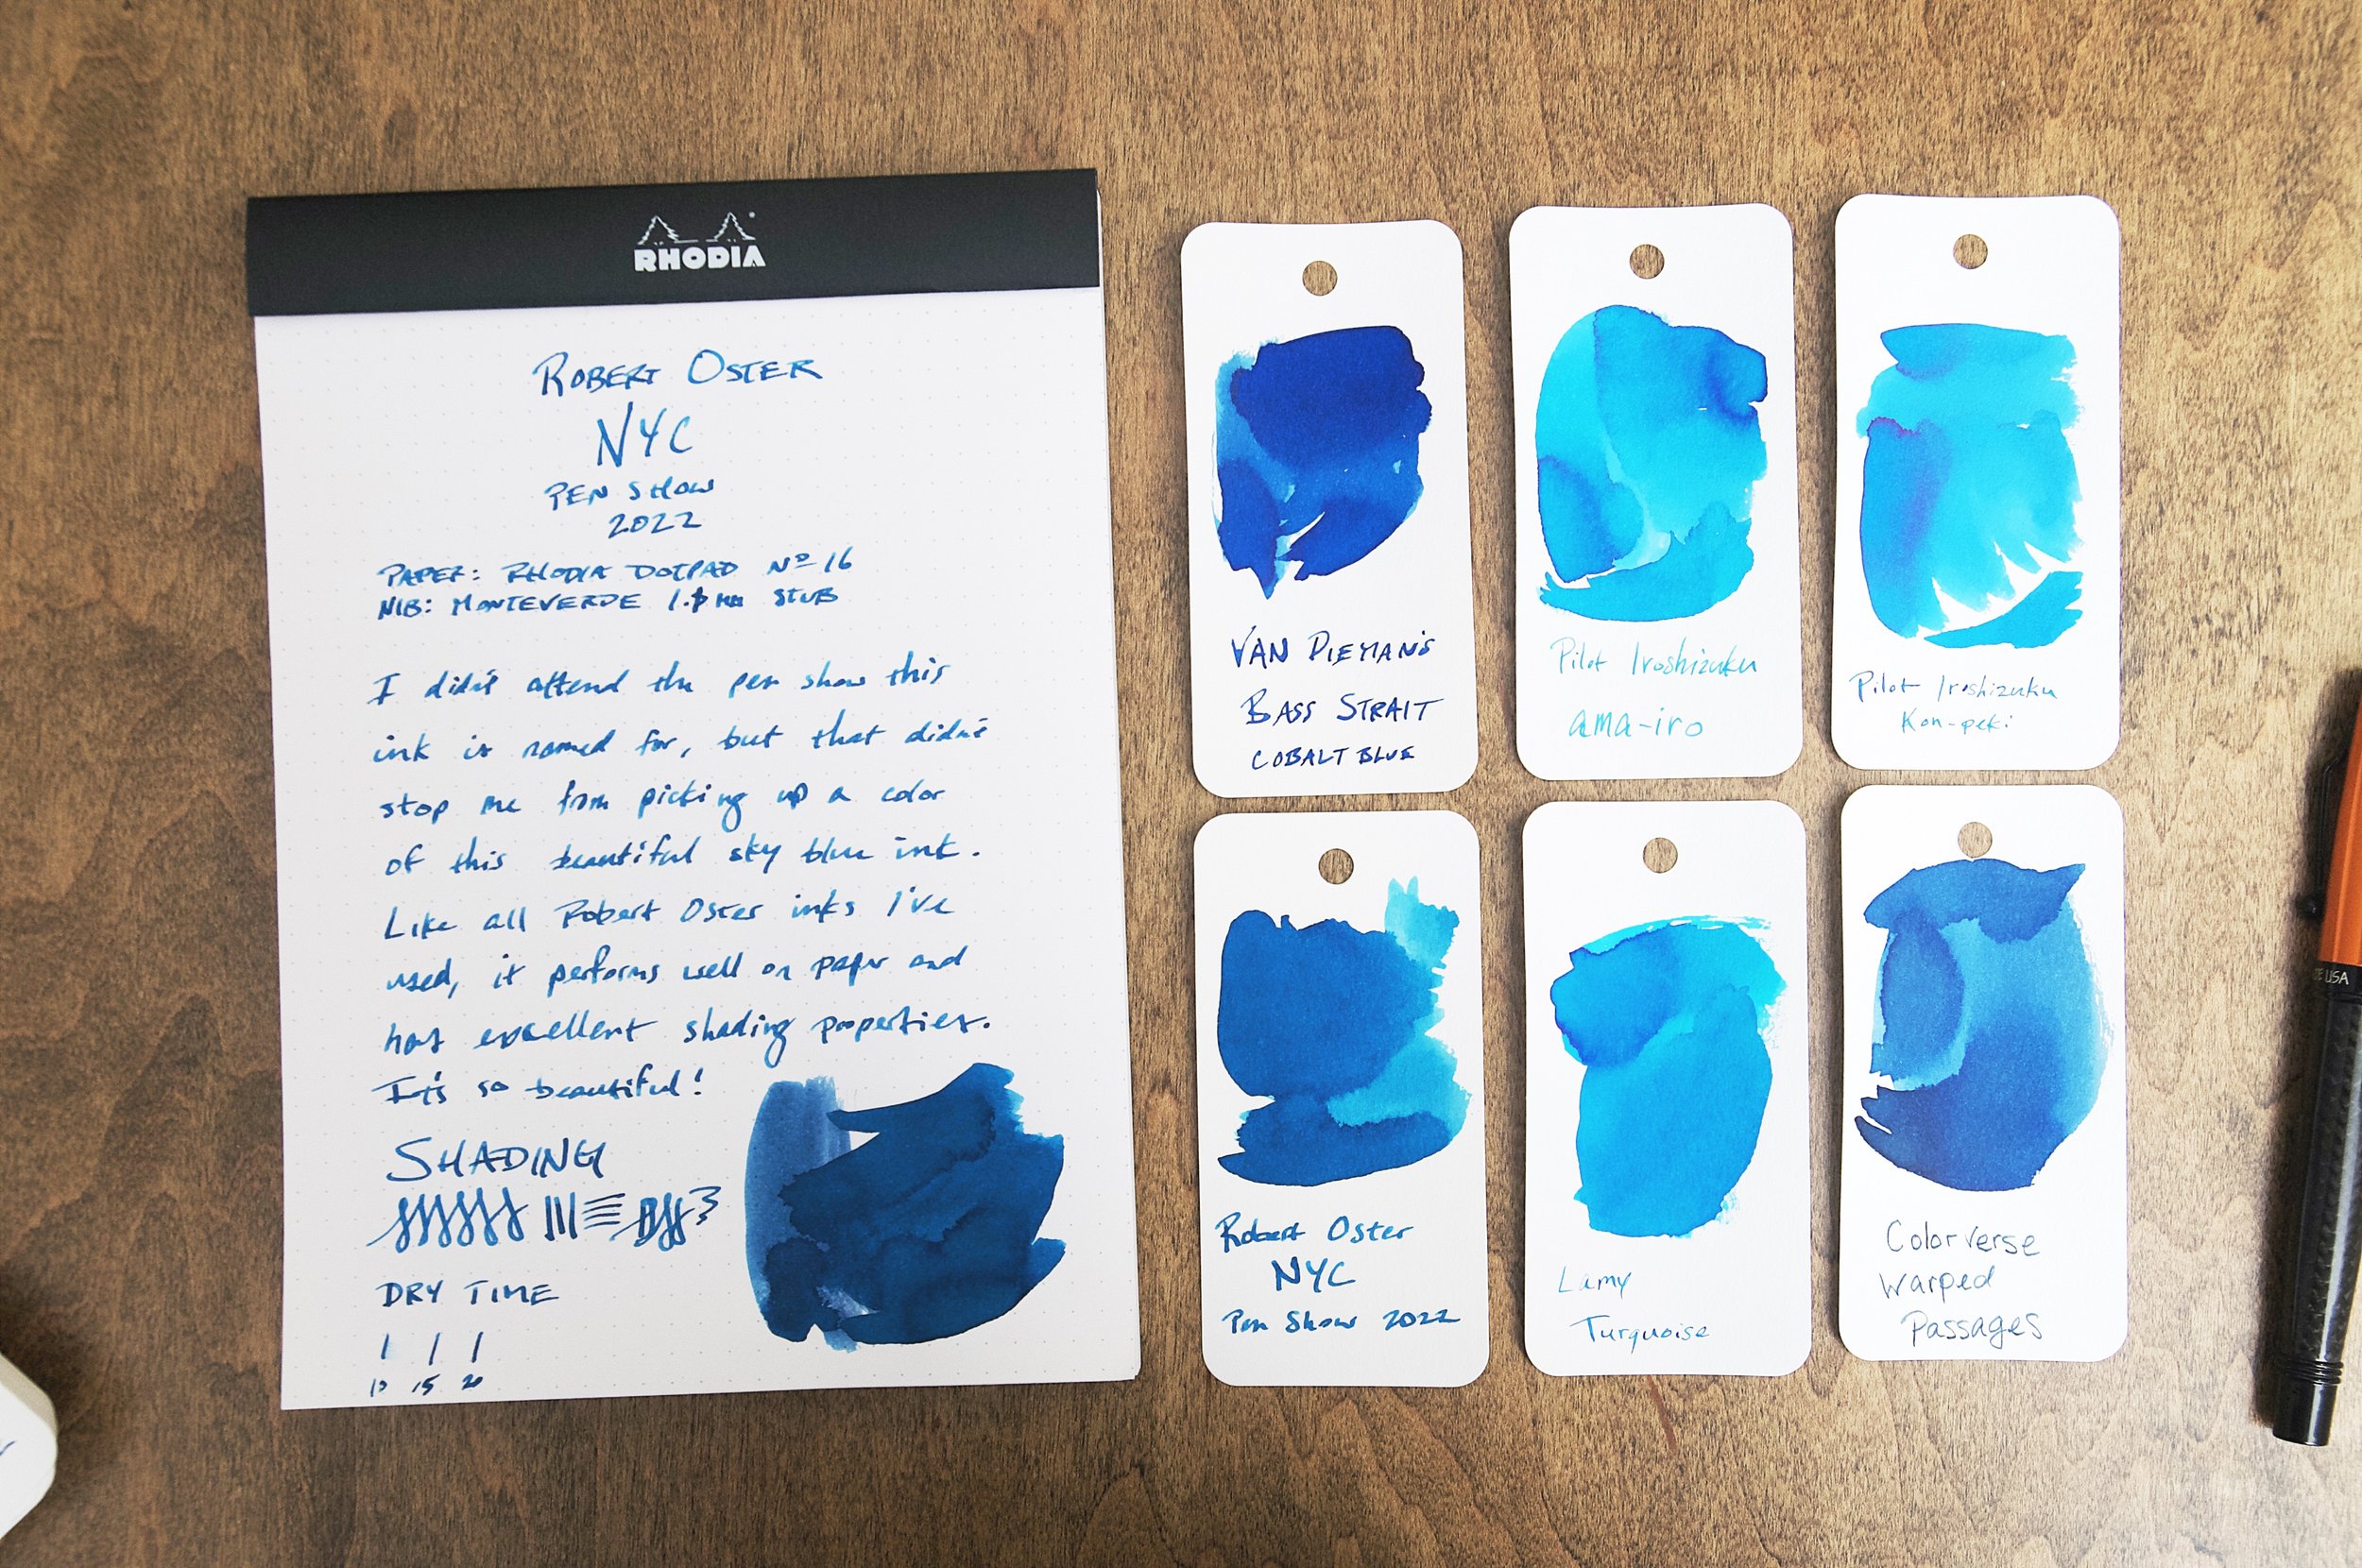 RHODIA
ROBERT OSTER
NYC
PEN SHOW
2022
PAPER: RHODIA DOTPAD Nº 16
NIB: MONTEVERDE 1.1 mm STUB
I didn't attend the pen show this
ink is named for, but that didn't
stop me from picking up a color
of this beautiful sky blue ink.
Like all Robert Oster inks I've
used, it performs well on paper and
has excellent shading properties.
It's so beautiful!
SHADING
DRY TIME
10 15 20
VAN DIEMAN'S
BASS STRAIT
COBALT BLUE
Pilot Iroshizuku
ama-iro
Pilot Iroshizuku
Kon-peki
Robert Oster
NYC
Pen Show 2022
Lamy
Turquoise
Colorverse
Warped
Passages
USA